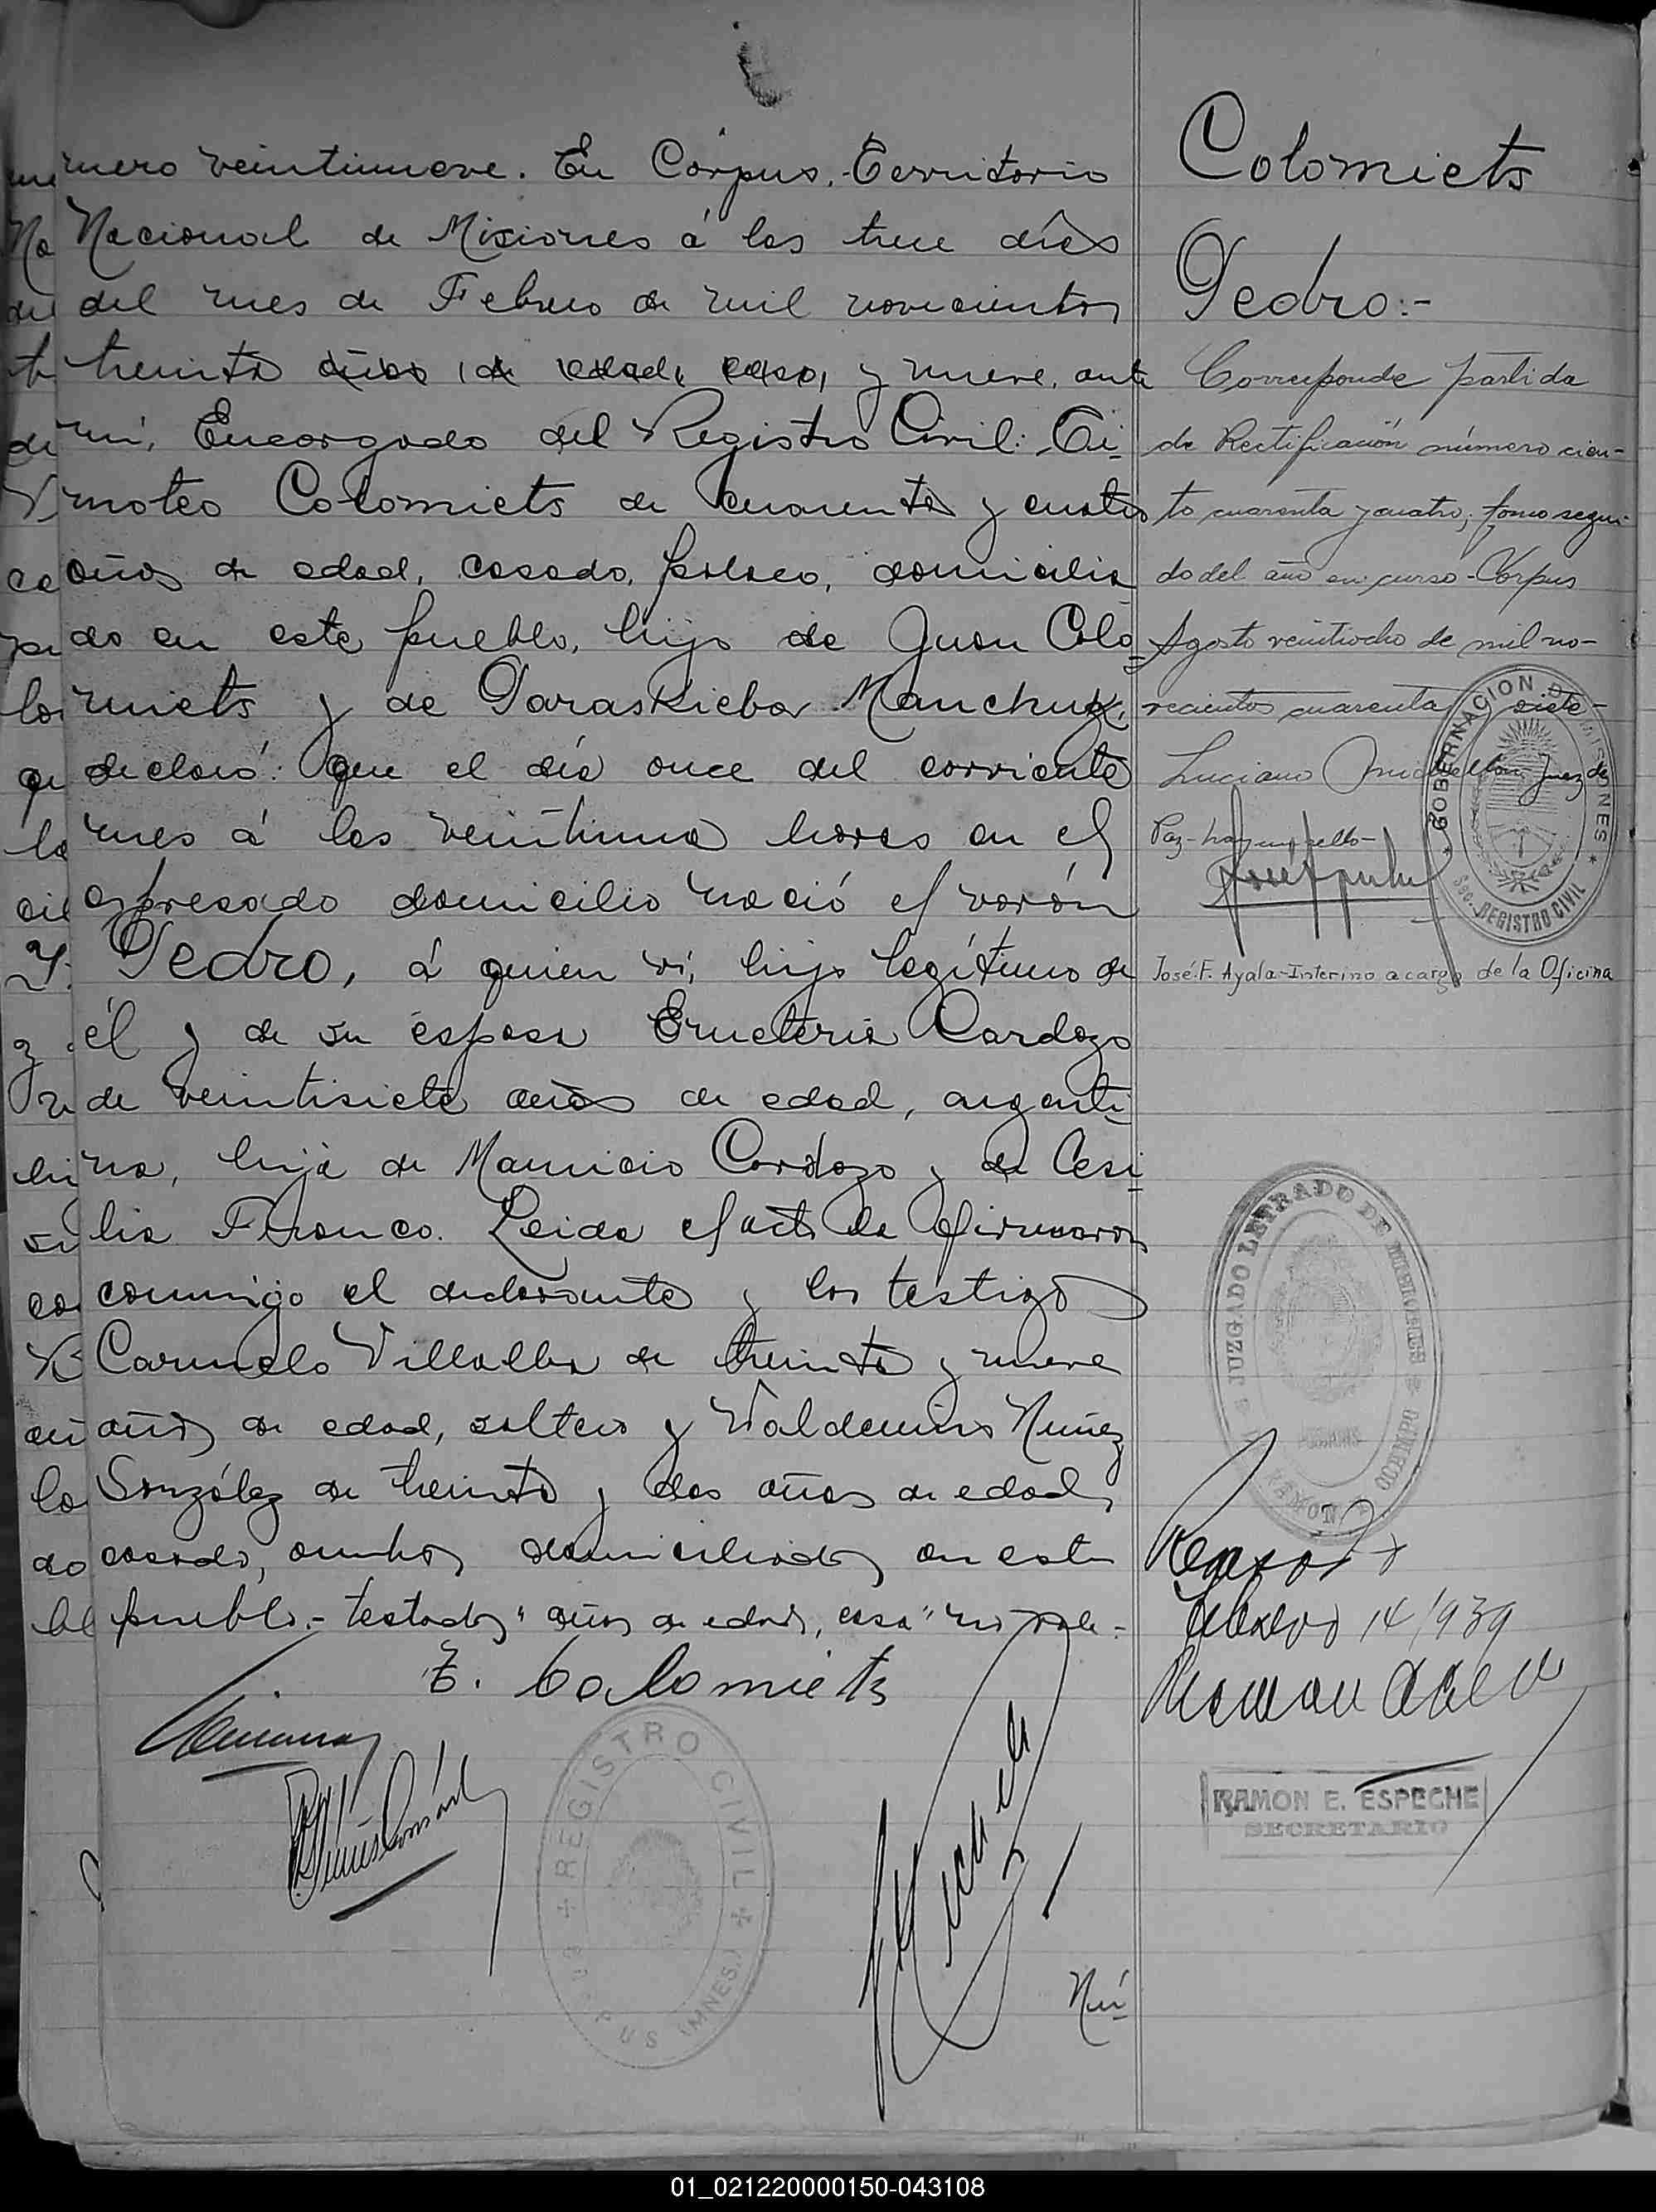 mero veintinueve. En Corpus, Territorio
Nacional de Misiones á los trece días
del mes de Febrero de mil novecientos
treinta años de edad, casa, y nueve, ante
mí, Encargado del Registro Civil: Ti-
moteo Colomiets de cuarenta y cuatro
años de edad, casado, polaco, domicilia
do en este pueblo, hijo de Juan Colo
miets y de Paraskieba Manchuk,
declaró: Que el día once del corriente
mes á las veintiuna horas en el
expresado domicilio nació el varón
Pedro, á quien ví, hijo legítimo de
él y de su esposa Emeteria Cardozo
de veintisiete años de edad, argenti
na, hija de Mauricio Cardozo y de Cesi
lia Franco. Leida el acta la firmaron
conmigo el declarante y los testigos
Carmelo Villalba de treinta y nueve
años de edad, soltero y Valdemiro Nuñez
González de treinta y dos años de edad,
casado, ambos domiciliados en este
pueblo.- testados "años de edad, casa" no vale.-
T. Colomiets
REGISTRO CIVIL
CORPUS (MNES.)
Nú-
Colomiets
Pedro:-
Corresponde partida
de Rectificación número cien-
to cuarenta y cuatro, tomo segun-
do del año en curso - Corpus
Agosto veintiocho de mil no-
vecientos cuarenta y siete-
Luciano Juez de
Paz- hay un sello-
GOBERNACION DE MISIONES
Sec. REGISTRO CIVIL
José F. Ayala-Interino a cargo de la Oficina
JUZGADO LETRADO DE MISIONES
RAMON OCAMPO
POSADAS
Febrero 14/939
RAMON E. ESPECHE
SECRETARIO
01_021220000150-043108